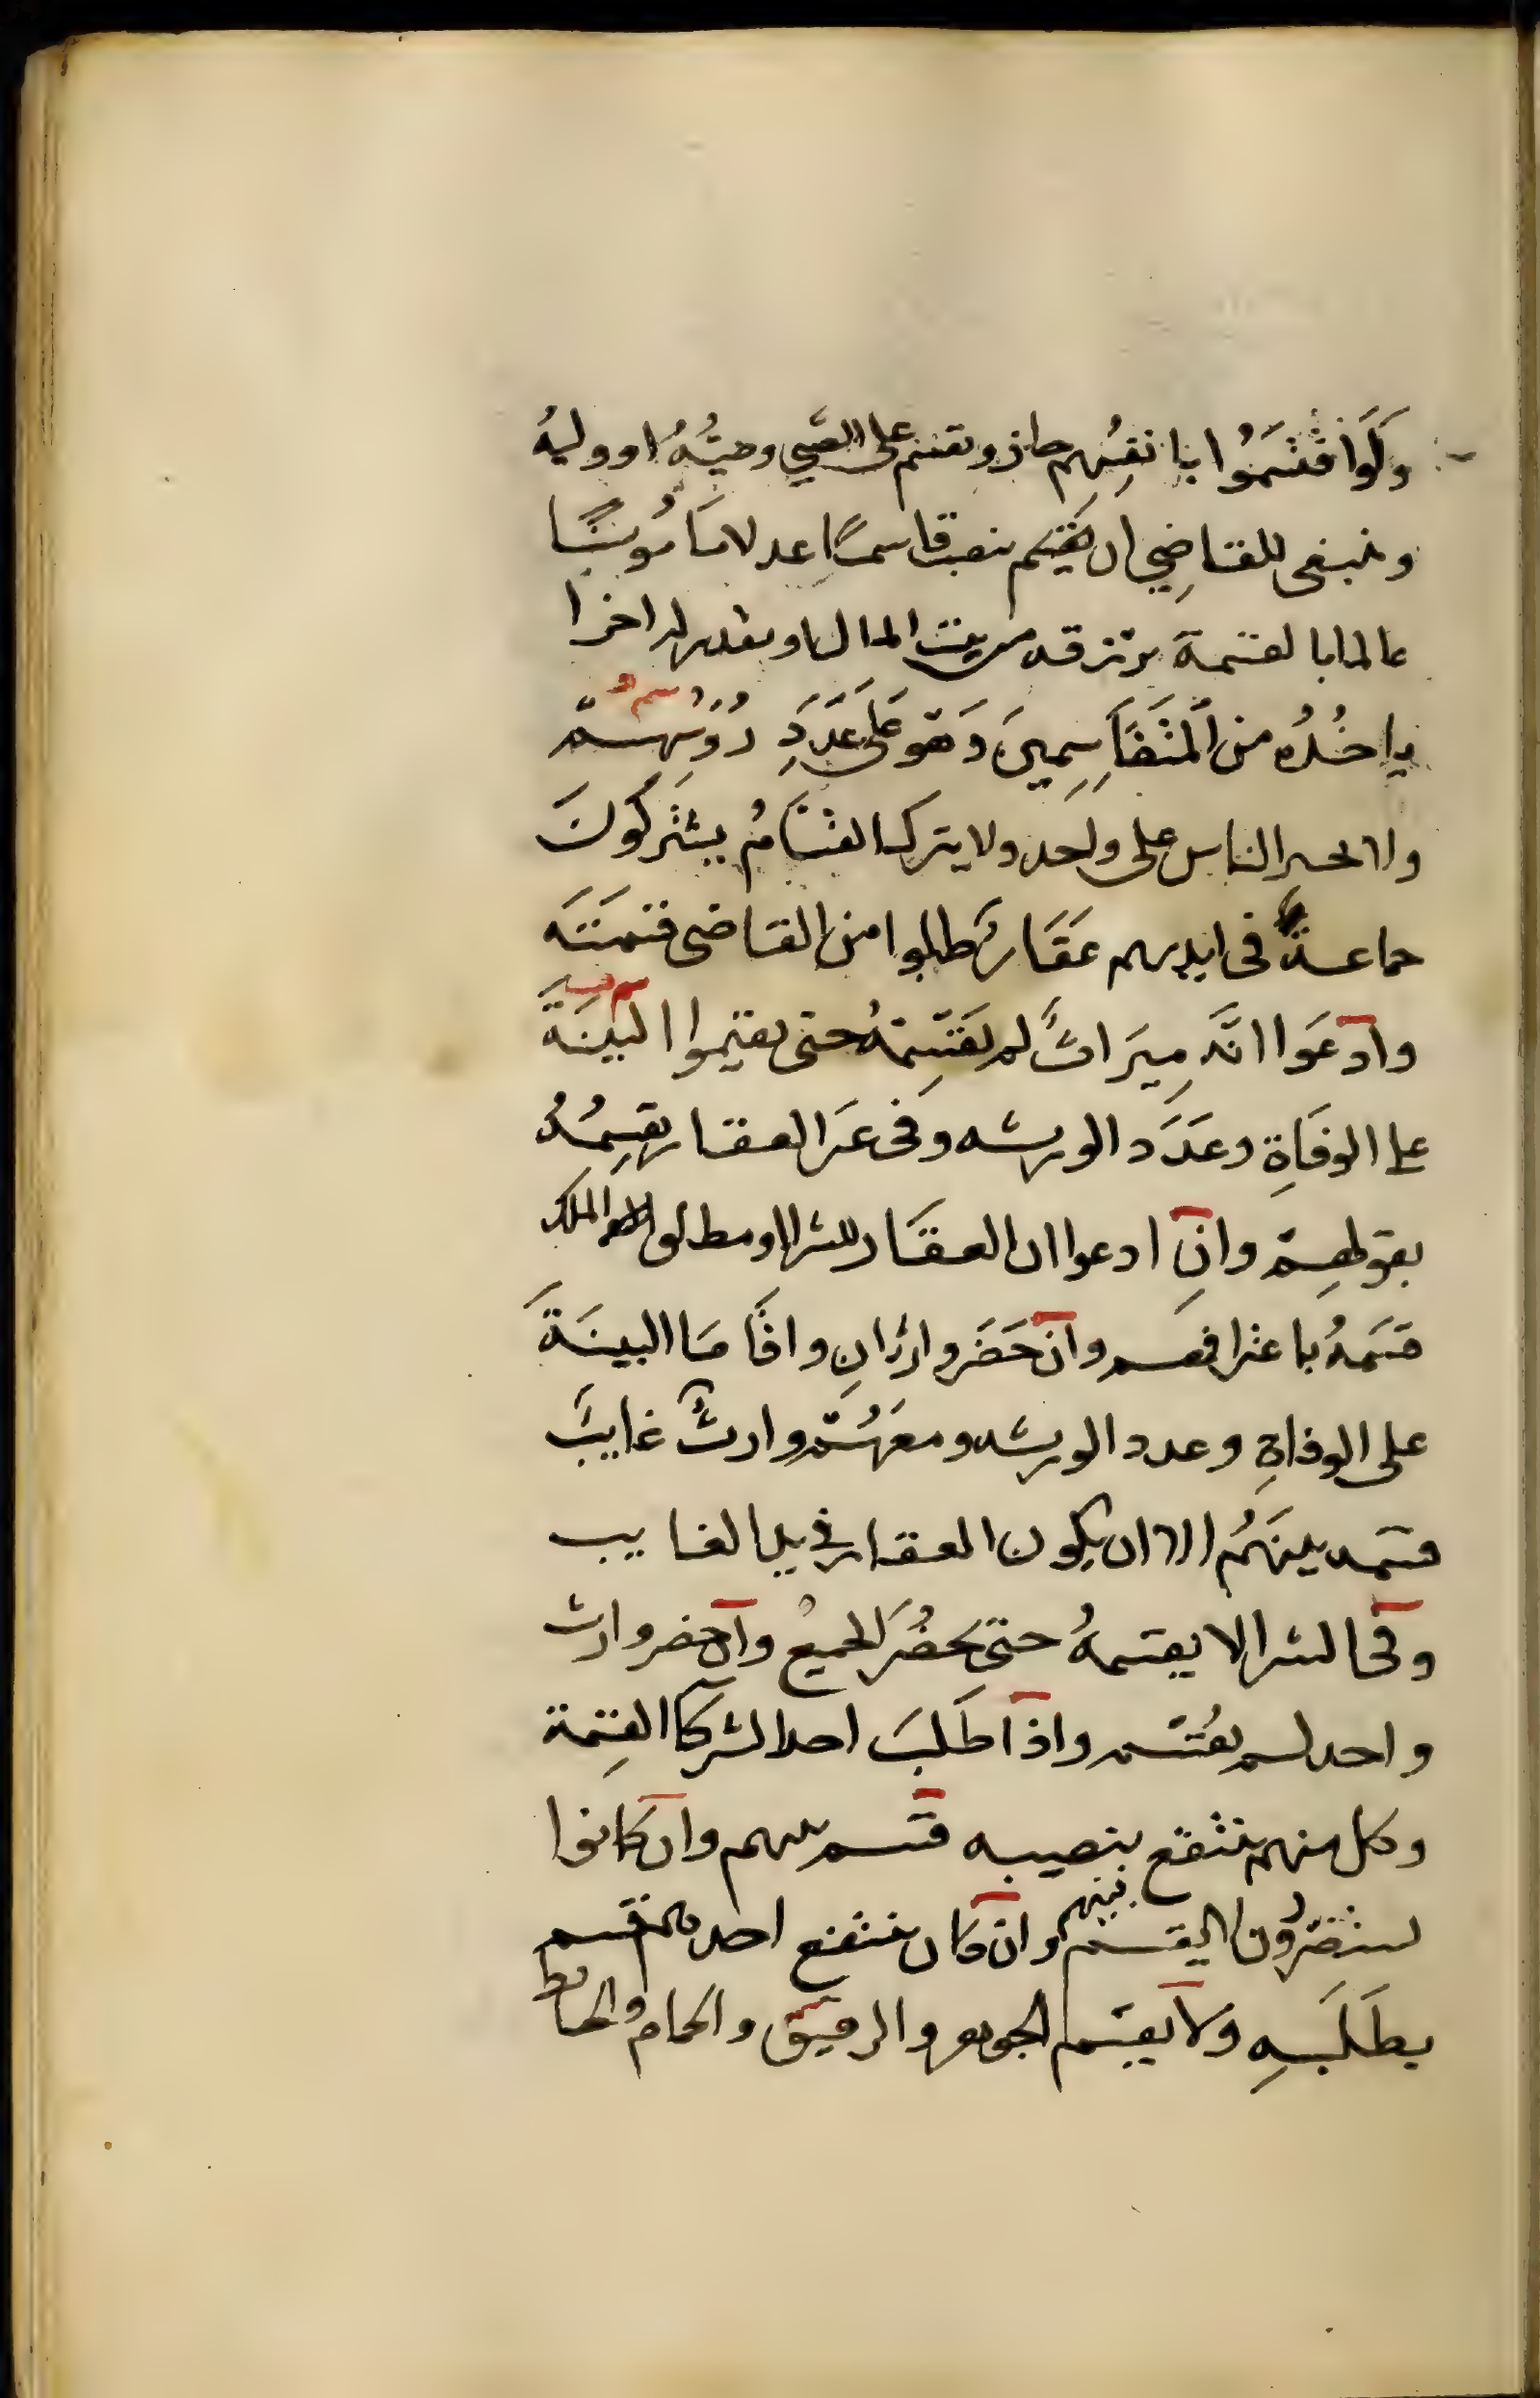 وَلَوَاقْتَسَمُوا بانفُسِهم جاز ويقسم على الصَّبي وصِيُّهُ او وليهُ
وينبغي للقاضِي ان ينصب قاسمًا عدلا مَأمُونًا
عالما بالقسمة يرزقه من بيت المال او يقدر له اجرا
ياخُذُه من المُتقَاسِمِينَ وَهو عَلى عَدَدِ رُوسِهم
ولا يجبر الناس على واحد ولا يترك القسَّامُ يشترِكُونَ
جماعة في ايديهم عَقَار طلبوا من القاضي قسمَتَه
وادعَوا انَّه مِيرَاثٌ لم يقسِمهُ حتى يقيموا البيِّنَةَ
على الوفَاةِ وعَدَد الورثه وفى غير العقار يقسِمُهُ
بقولهم وان ادعوا ان العقَار للشرا او مطلق الملك
قسَمَهُ باعترافهم وان حَضَر وارثانِ واقَامَا البينَةَ
على الوفاةِ وعدد الورثه ومعهُم وارثٌ غايب
قسمه بينهُم الا ان يكون العقار في يد الغايب
وفى الشرا لا يقسمهُ حتى يحضُر الجميعُ وان حضر وارث
واحد لم يقسم واذا طَلبَ احد الشركا القِسمة
وكل منهم ينتفع بنصيبه قسم بينهم وان كانوا
يستضرون لا يقسم بينهم وان كان ينتفع احدهم قسم
بطَلَبهِ ولا يقسم الجوهر والرقيق والحمام والحائط